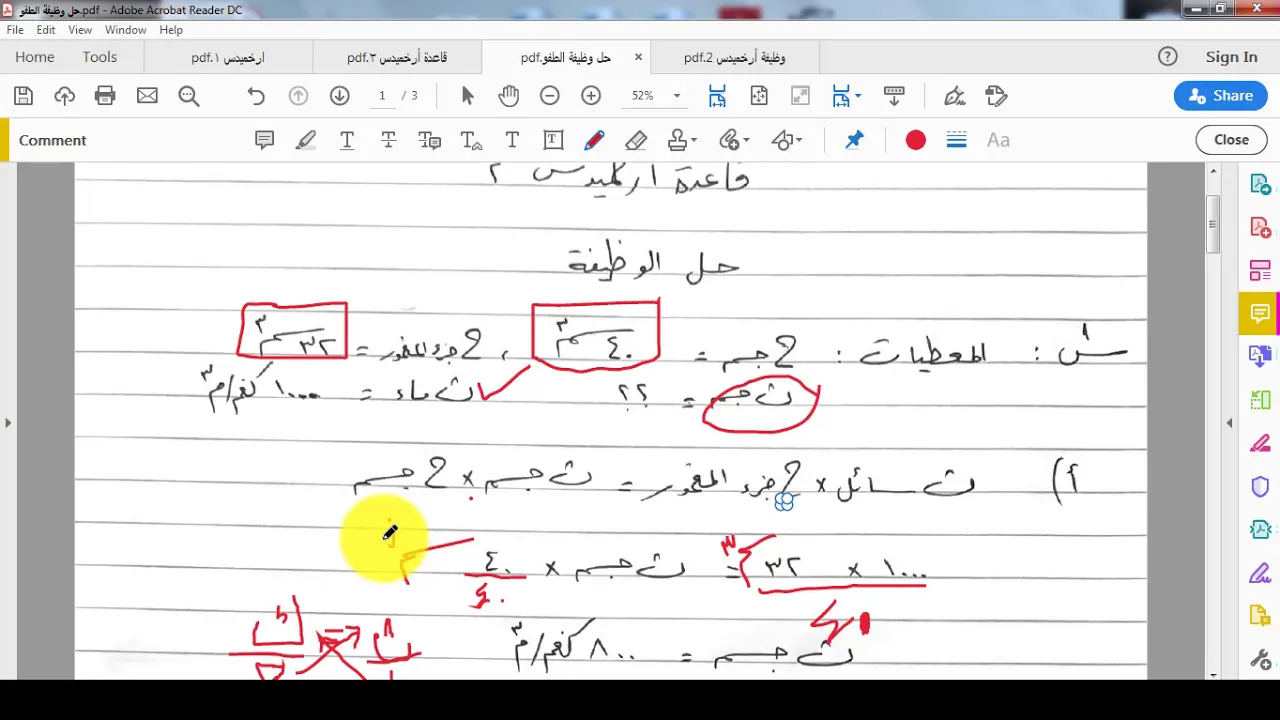 حل وظيفة الطفو.pdf - Adobe Acrobat Reader DC
File Edit View Window Help
Home Tools ارخميدس ١.pdf قاعدة أرخميدس ٢.pdf حل وظيفة الطفو.pdf وظيفة أرخميدس 2.pdf Sign In
1 / 3 52% Share
Comment Close
قاعدة ارخميدس ٢
حل الوظيفة
س١ : المعطيات : ح جسم = ٤٠ سم٣ ، ح جزء المغمور = ٣٢ سم٣
ث جسم = ؟؟ ث ماء = ١٠٠٠ كغم/م٣
أ) ث سائل × ح جزء المغمور = ث جسم × ح جسم
١٠٠٠ × ٣٢ = ث جسم × ٤٠
٤٠
ث جسم = ٨٠٠ كغم/م٣